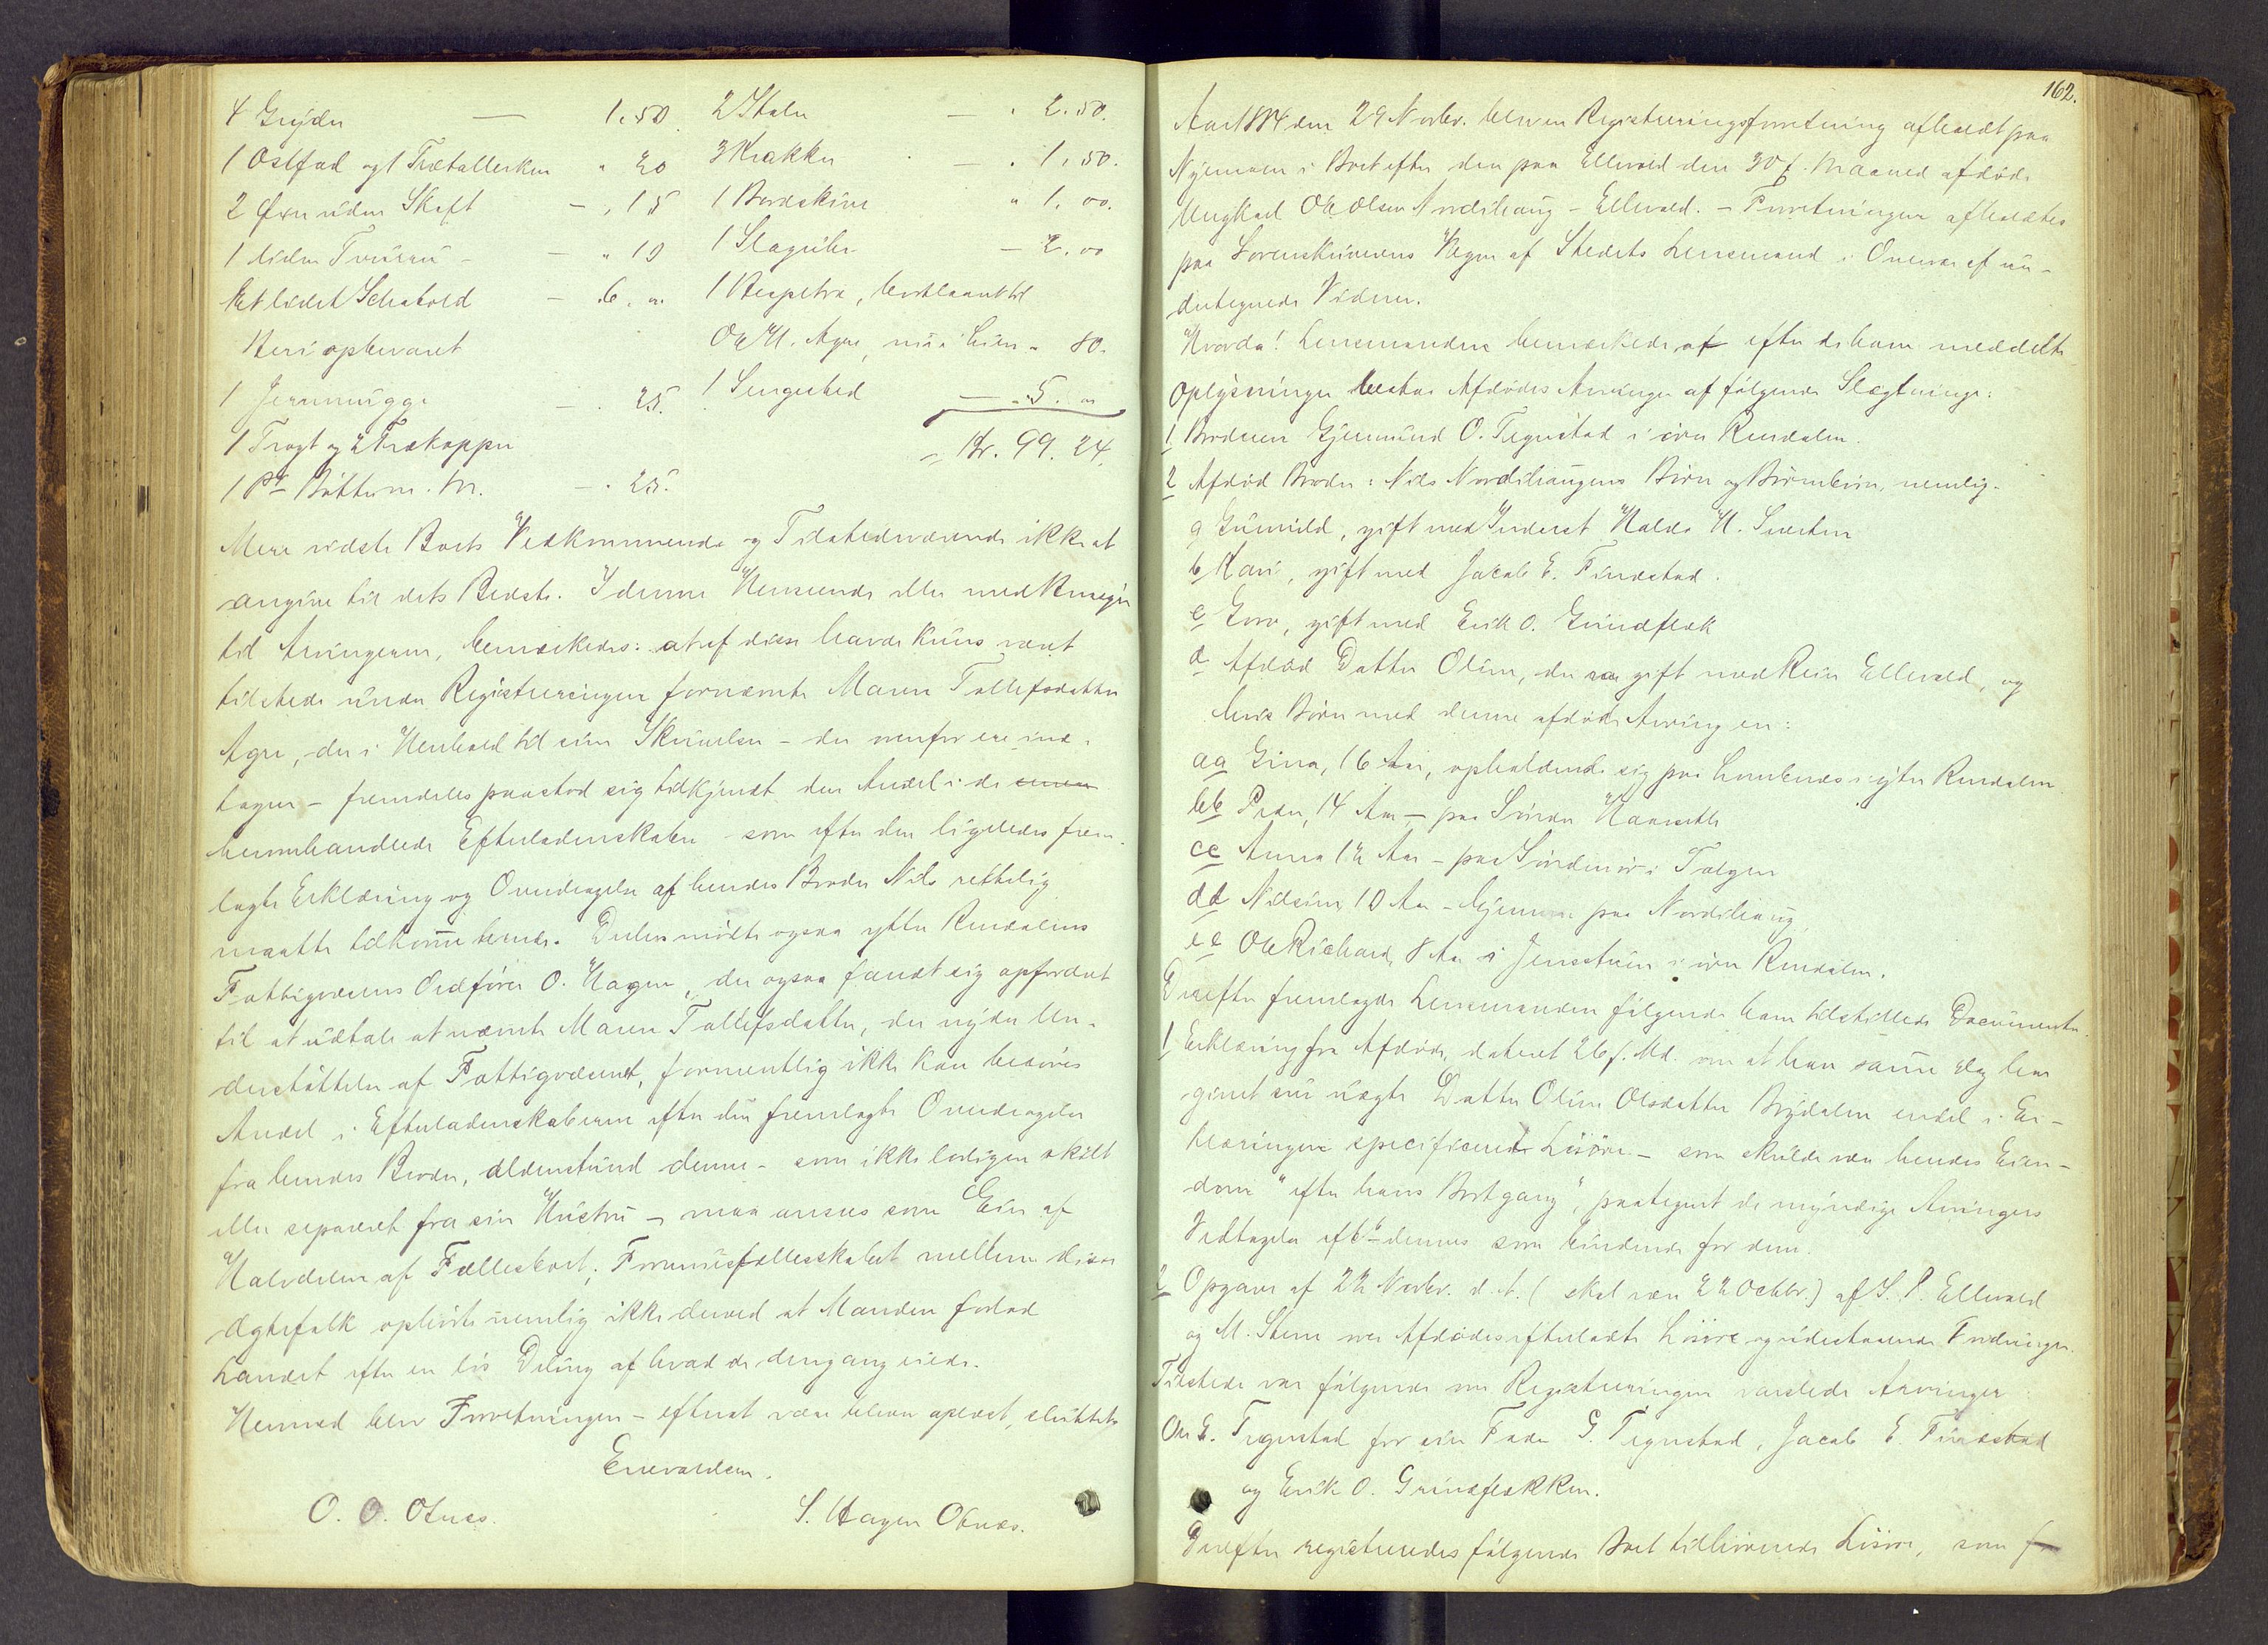 4 Gryder — 1.50.
1 Ostfad og 1 Trætallerken " 20
2 Øxer uden Skaft — " 15
1 liden — " 10
Et lidet Schatold — 6. "
Heri opbevaret
1 Jernmugge — . 25.
1 Tragt og 2 Trækopper
1 Pt. Bøtter m. M. — . 25.
2 Stole — . 2.50.
3 Krakker — . 1.50.
1 Bordskive " 1.00.
1 Slaguhr — 2.00
1 bortlaant til
Ole H. Agre, — 80.
1 Sengested — 5. "
= Kr. 99.24.
Mere vidste Boets Vedkommende og Tilstedeværende ikke at
angive til dets Bedste. I denne Henseende eller med Hensyn
til Arvingerne, bemærkedes: at af disse havde kuns været
tilstede under Registreringen fornævnte Maren Tollefsdatter
Agre, der i Henhold til sin Skrivelse – der ovenfor ere ind-
tagen – fremdeles paastod sig tilkjendt den Andel i de
heromhandlede Efterladenskaber som efter den ligeledes frem-
lagte Erklæring og Overdragelse af hendes Broder Nils rettelig
maatte tilkomme hende. Derhos mødte ogsaa ytre Rendalens
Fattigvæsens Ordfører O. Hagen, der ogsaa fandt sig opfordret
til at udtale at nævnte Maren Tollefsdatter, der nyder Un-
derstøttelse af Fattigvæsenet, formentlig ikke kan berøves
Andel i Efterladenskaberne efter den fremlagte Overdragelse
fra hendes Broder, aldenstund denne – som ikke lovligen skilt
eller separeret fra sin Hustru – maa ansees som Eier af
Halvdelen af Fællesboet; Formuesfællesskabet mellem disse
Ægtefolk ophørte nemlig ikke derved at Manden forlod
Landet efter en løs Deling af hvad de dengang eiede.
Hermed blev Forretningen – efterat være bleven oplæst, sluttet
Enevoldsen.
O. O. Otnes. S. Hagen Otnes.
162.
Aar 1884 den 29 Novbr. blev en Registreringsforretning afholdt paa
i Boet efter den paa Ellevold den 30 f. Maaned afdøde
Ungkarl Ole Olsen Nordihaug – Ellevold. – Forretningen afholdtes
paa Sorenskriverens Vegne af Stedets Lensmand i Overvær af un-
dertegnede Vidner.
Hvorda! Lensmanden bemærkede at efter de ham meddelte
Oplysninger bestaar Afdødes Arvinger af følgende Slægtninge:
1 Broderen Gjermund O. Tegnstad i øvre Rendalen.
2 Afdød Broder: Nils Nordihaugens Børn og Børnebørn, nemlig.
a Gunild, gift med Inderst Halde H.
b Kari, gift med Jacob E. Finstad.
c Goro, gift med Erik O. Grindflæk
d Afdød Datter Oline, der var gift med Ellevold, og
hvis Børn med denne afdøde Arving er:
aa Gina, 16 Aar, opholdende sig paa Lombnæs i ytre Rendalen.
bb Peder, 14 Aar – paa Søndre Haarset
cc Anna 12 Aar – paa i Tolgen
dd Nilsine 10 Aar – hjemme paa Nordihaug,
ee Ole Richard, 8 Aar i i øvre Rendalen.
Derefter fremlagde Lensmanden følgende ham tilstillede Documenter.
1 Erklæring fra Afdøde, dateret 26 f. Md. om at han samme Dag har
givet sin uægte Datter Oline Olsdatter Brydalen endel i Er-
klæringen specificeret Løsøre – som skulde være hendes Eien-
dom "efter hans Bortgang", paategnet de myndige Arvingers
Vedtagelse af dennes som bindende for dem.
2 Opgave af 22 Novbr. d. A. (skal være 22 Octbr.) af S. P. Ellevold
og M. Stene over Afdødes efterladte Løsøre og udestaaende Fordringer.
Tilstede var følgende om Registreringen varslede Arvinger
Ole G. Tegnstad for sin Fader G. Tegnstad, Jacob E. Finstad
og Erik O. Grindflækken.
Derefter registreredes følgende Boet tilhørende Løsøre, som